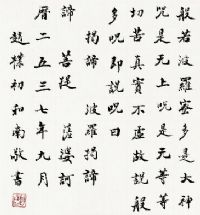 般若波羅蜜多是大神
咒是无上咒是无等等
切苦真實不虛故說
多咒即說咒曰
揭諦 波羅揭諦
諦 菩提 薩婆訶
曆二五三七年九月
趙樸初和南敬書